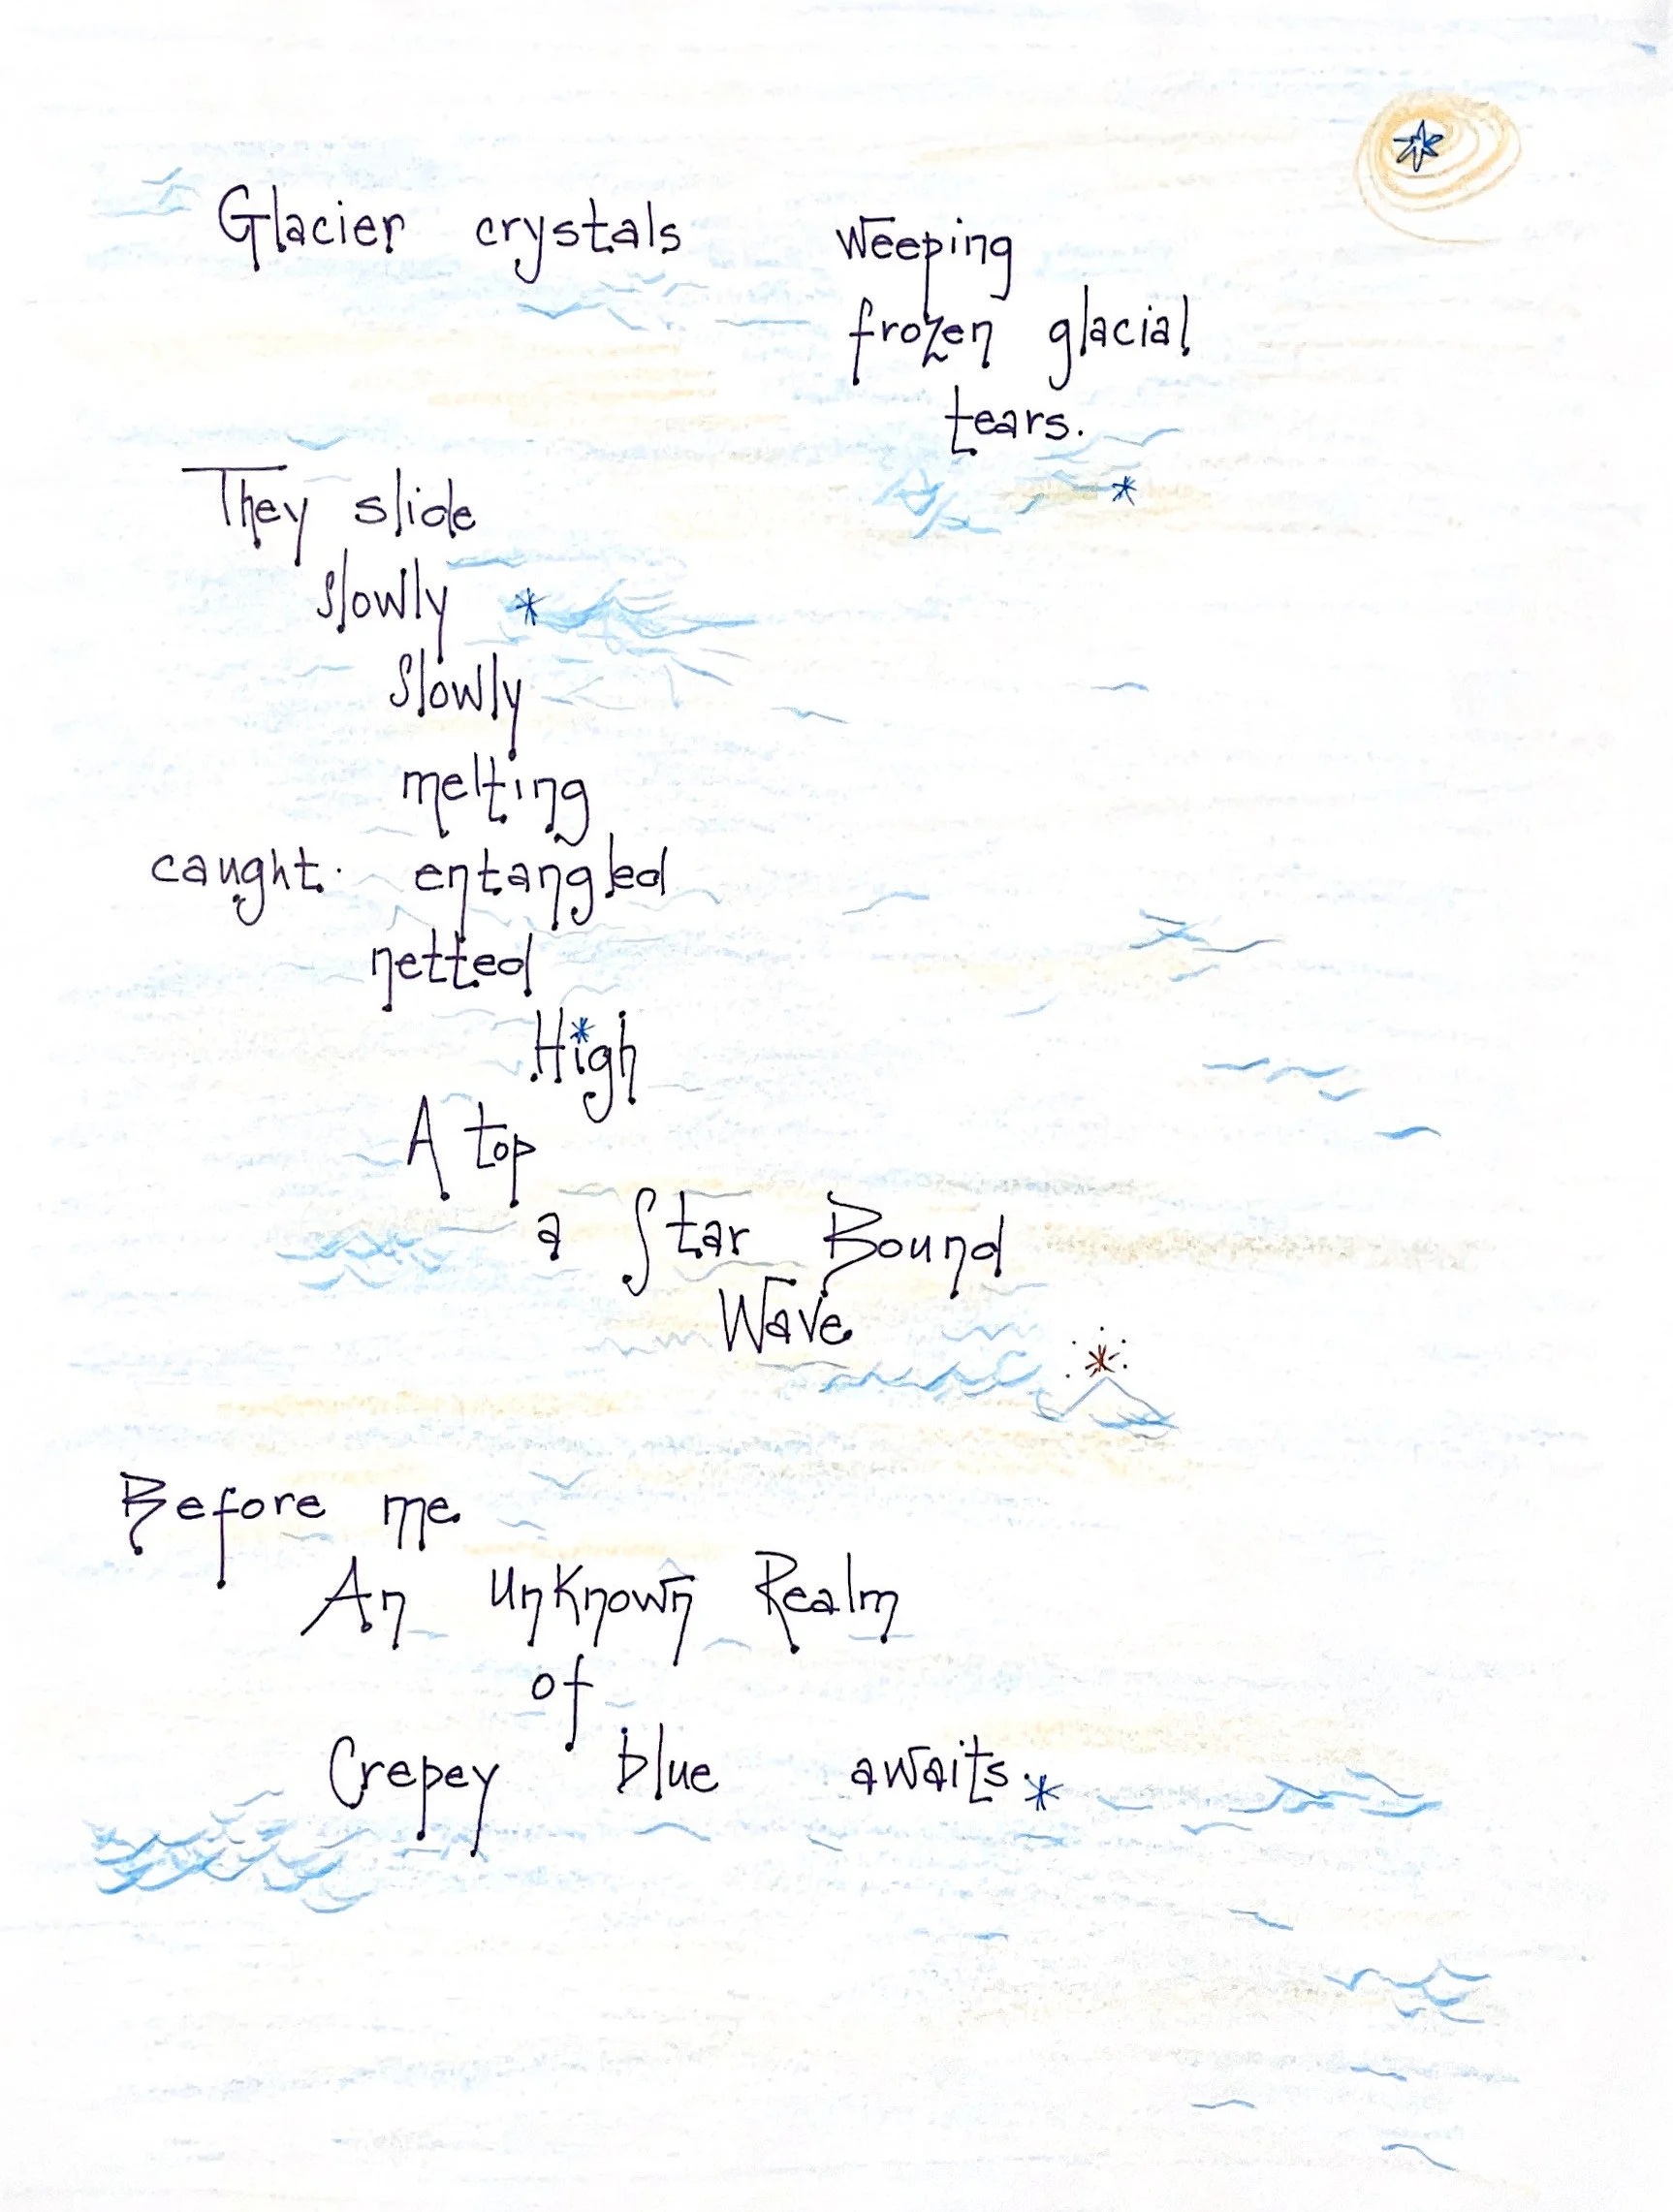 Glacier crystals weeping
frozen glacial
tears.
They slide
slowly
slowly
melting
caught. entangled
netted
High
A top
a Star Bound
Wave
Before me
An unknown Realm
of
Crepey blue awaits.